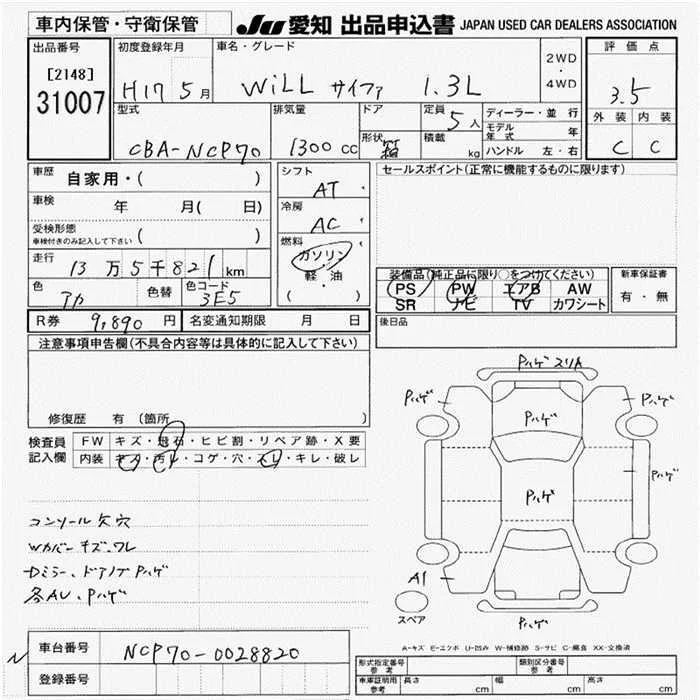 車内保管・守衛保管 JU 愛知 出品申込書 JAPAN USED CAR DEALERS ASSOCIATION
出品番号 初度登録年月 車名・グレード 2WD・4WD 評価点
[2148] 31007 H17 5月 WiLL サイファ 1.3L 3.5
型式 排気量 ドア 定員 5人 ディーラー・並行 外装 内装
CBA-NCP70 1300cc 形状 箱 積載 kg モデル年式 年 C C
ハンドル 左・右
車歴 自家用・( ) シフト AT セールスポイント(正常に機能するものに限ります)
車検 年 月( 日) 冷房 AC
受検形態 車検付きのみ記入して下さい ( ) 燃料 ガソリン・軽・油 ( )
走行 13万5千821km 装備品(純正品に限り○をつけてください) 新車保証書
PS PW エアB AW 有・無
色 アカ 色替 色コード 3E5 SR ナビ TV カワシート
R券 9,890円 名変通知期限 月 日 後日品
注意事項申告欄(不具合内容等は具体的に記入して下さい)
修復歴 有(箇所
検査員記入欄 FW キズ・飛石・ヒビ割・リペア跡・X要
内装 キズ・汚レ・コゲ・穴・スレ・キレ・破レ
Pハゲ スリA
Pハゲ
Pハゲ
Pハゲ
Pハゲ
Pハゲ
A1
Pハゲ
スペア
コンソール欠穴
Wカバーキズ、ワレ
Dミラー、ドアノブPハゲ
各AU、Pハゲ
A-キズ E-エクボ U-凹み W-補修跡 S-サビ C-腐食 XX-交換済
車台番号 NCP70-0028820
登録番号
形式指定番号 参考 類別区分番号 参考
車庫証明用 参考 長さ cm 幅 cm 高さ cm